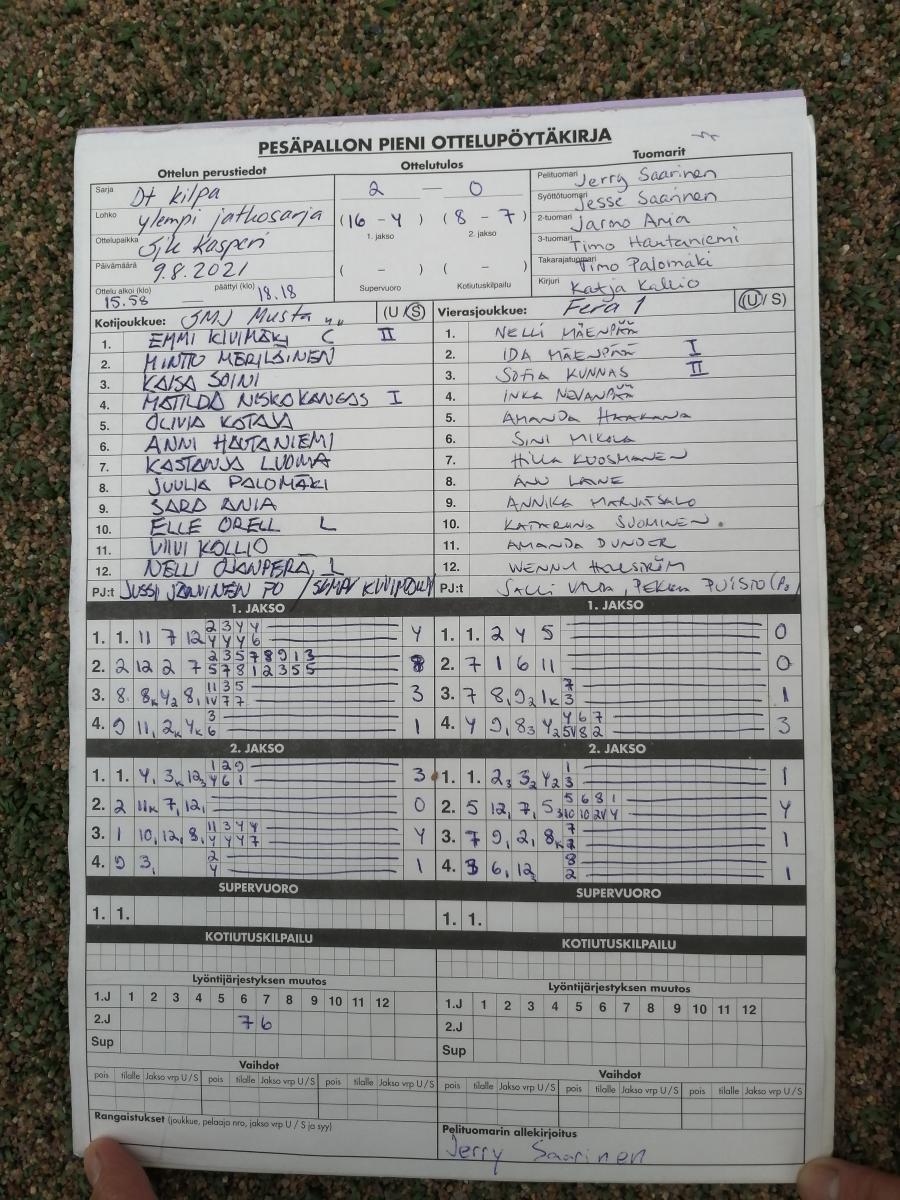 PESÄPALLON PIENI OTTELUPÖYTÄKIRJA
Ottelun perustiedot
Sarja D+ kilpa
Lohko ylempi jatkosarja
Ottelupaikka Sjk Kasperi
Päivämäärä 9.8.2021
Ottelu alkoi (klo) 15.58 päättyi (klo) 18.18
Ottelutulos
2 — 0
(16 - 4) (8 - 7)
1. jakso 2. jakso
( - ) ( - )
Supervuoro Kotiutuskilpailu
Tuomarit
Pelituomari Jerry Saarinen
Syöttötuomari Jesse Saarinen
2-tuomari Jarmo Ania
3-tuomari Timo Hautaniemi
Takarajatuomari Timo Palomäki
Kirjuri Katja Kallio
Kotijoukkue: JMJ Musta (U/S)
1. EMMI KIVIMÄKI C II
2. MINTTU MERILÄINEN
3. KAISA SOINI
4. MATILDA NISKAKANGAS I
5. OLIVIA KATAVA
6. ANNI HAUTANIEMI
7. KASTANJA LUOMA
8. JUULIA PALOMÄKI
9. SARA ANIA
10. ELLE ORELL L
11. VIIVI KALLIO
12. NELLI OJANPERÄ, L
PJ:t JUSSI JÄRVINEN PO / SEMPV KIVIMÄKI
Vierasjoukkue: Fera 1 (U/S)
1. NELLI MÄENPÄÄ
2. IDA MÄENPÄÄ I
3. SOFIA KUNNAS II
4. INKA NEVANPÄÄ
5. AMANDA HAAKANA
6. SINI MIKOLA
7. HILLA KUOSMANEN
8. ANU LAINE
9. ANNIKA MARJATSALO
10. KATARIINA SUOMINEN.
11. AMANDA DUNDER
12. WENNI HALLSTRÖM
PJ:t SALLI VILJA, PEKKA PUISTO (PO)
1. JAKSO
1. 1. 11 7 12 2 3 4 4 4
4 4 4 6
2. 2 12 2 7 2 3 5 7 8 9 1 3 8
5 7 8 1 2 3 5 5
3. 8 8k 4 2 8, 11 3 5 3
IV 7 7
4. 9 11, 2k 4k 3 1
6
1. JAKSO
1. 1. 2 4 5 0
2. 7 1 6 11 0
3. 7 8, 9 2 1k 7 1
3
4. 4 9, 8 3 4 2 4 6 7 3
5V 8 2
2. JAKSO
1. 1. 4, 3k 12 3 1 2 9 3
4 6 1
2. 2 11k 7, 12, 0
3. 1 10, 12, 8, 11 3 4 4 4
4 4 4 7
4. 9 3, 2 1
4
2. JAKSO
1. 1. 2 3 3 2 4 2 1 1
3
2. 5 12, 7, 5 3 5 6 8 1 4
10 10 2V 4
3. 7 9, 2, 8k 7 1
4. 3 6, 12 8 1
2
SUPERVUORO
1. 1.
SUPERVUORO
1. 1.
KOTIUTUSKILPAILU
KOTIUTUSKILPAILU
Lyöntijärjestyksen muutos
1.J 1 2 3 4 5 6 7 8 9 10 11 12
2.J 7 6
Sup
Lyöntijärjestyksen muutos
1.J 1 2 3 4 5 6 7 8 9 10 11 12
2.J
Sup
Vaihdot
pois tilalle Jakso vrp U/S pois tilalle Jakso vrp U/S pois tilalle Jakso vrp U/S
Vaihdot
pois tilalle Jakso vrp U/S pois tilalle Jakso vrp U/S pois tilalle Jakso vrp U/S
Rangaistukset (joukkue, pelaaja nro, jakso vrp U/S ja syy)
Pelituomarin allekirjoitus
Jerry Saarinen